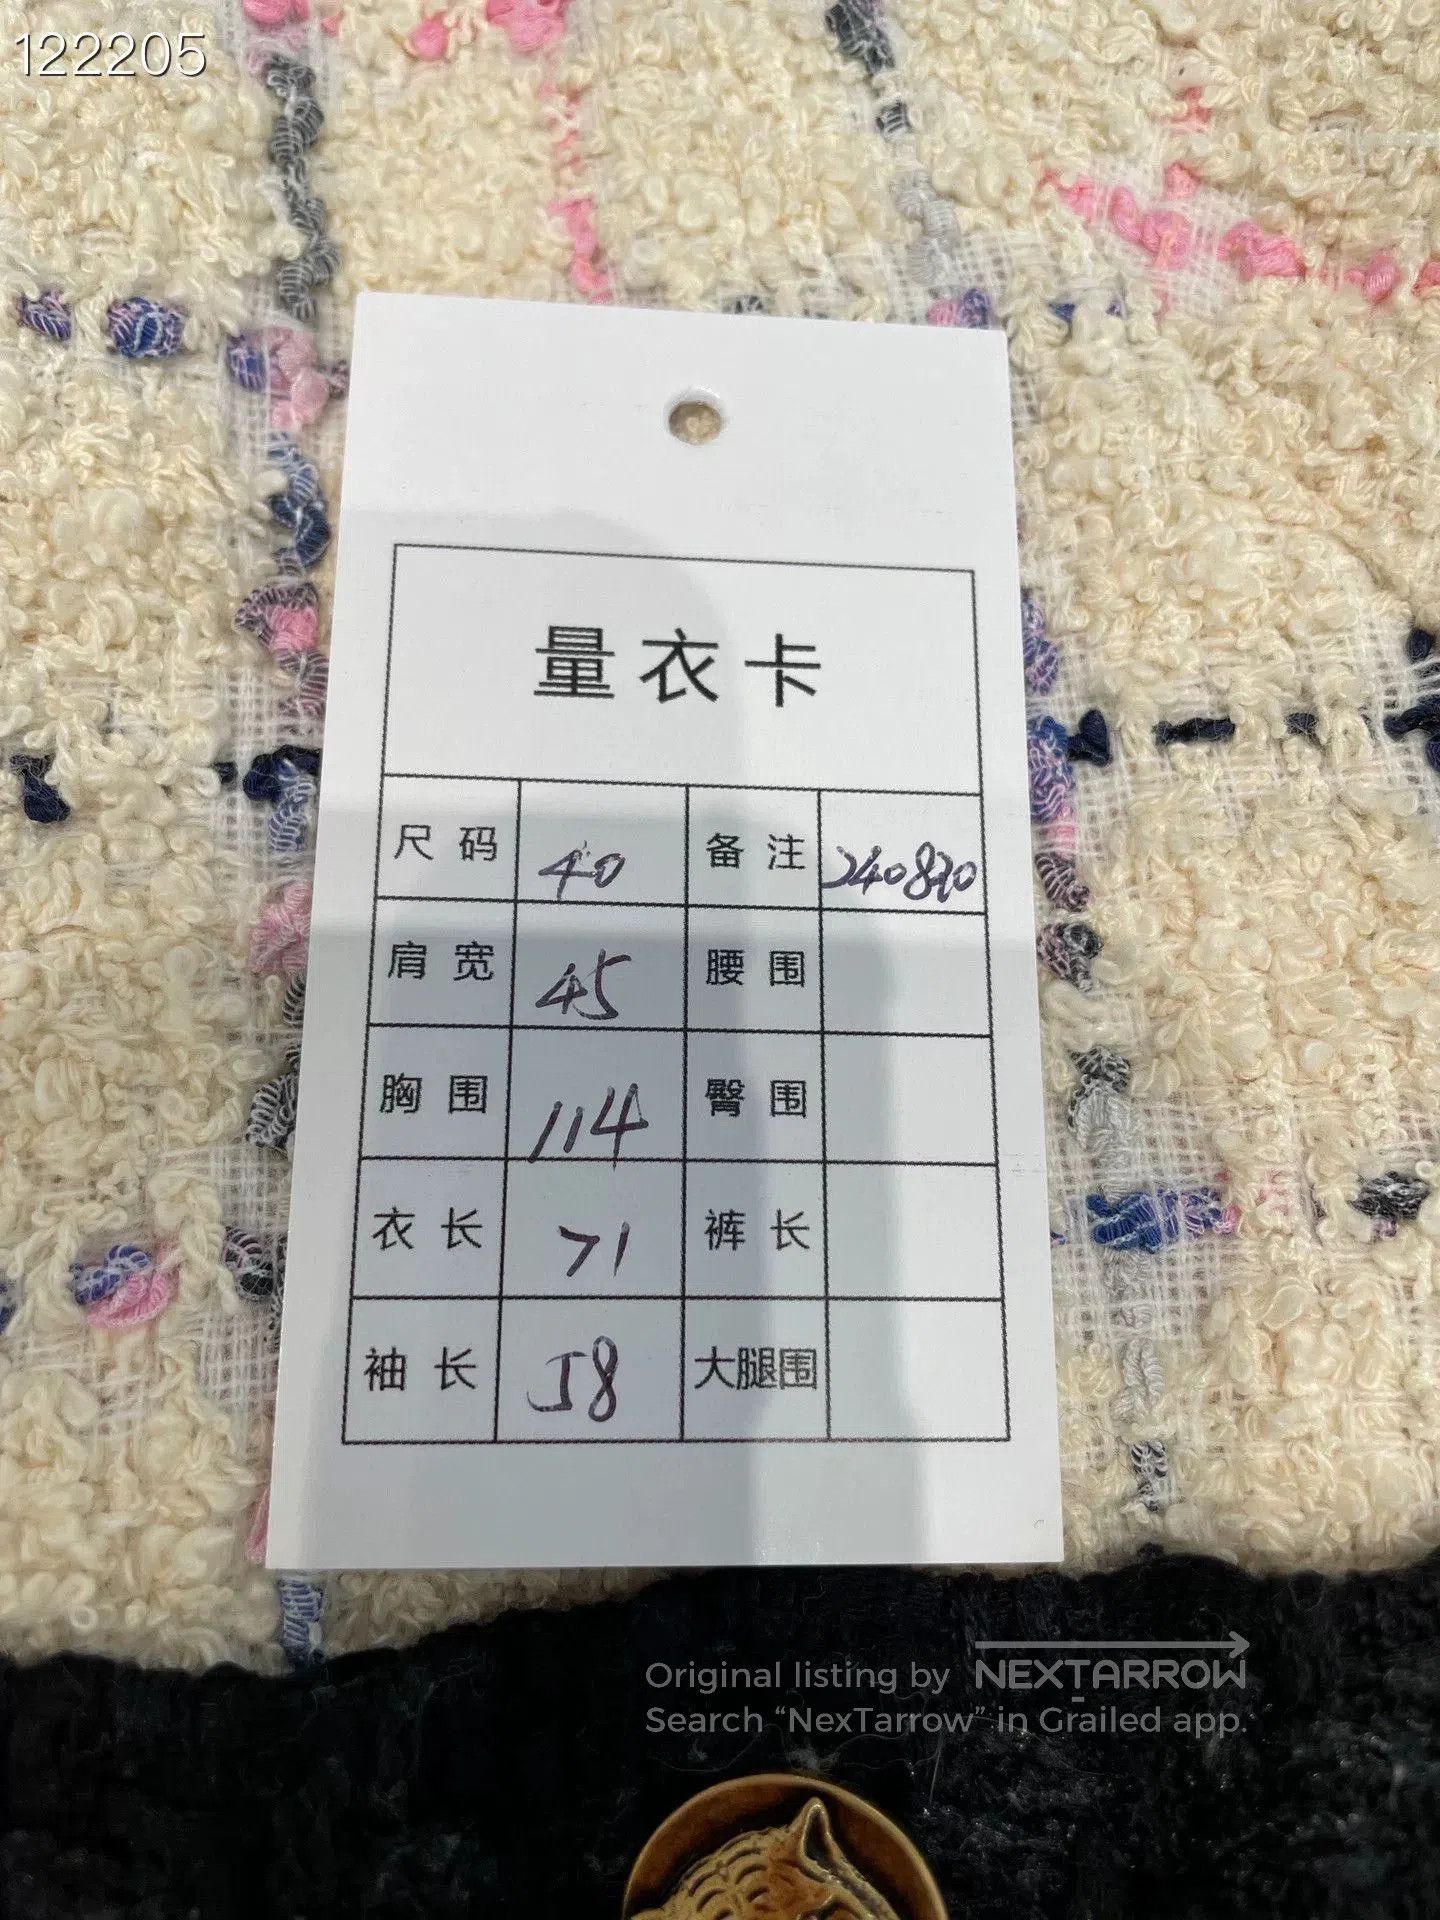 122205
量衣卡
尺码 40 备注 240820
肩宽 45 腰围
胸围 114 臀围
衣长 71 裤长
袖长 58 大腿围
Original listing by NEXTARROW
Search “NexTarrow” in Grailed app.